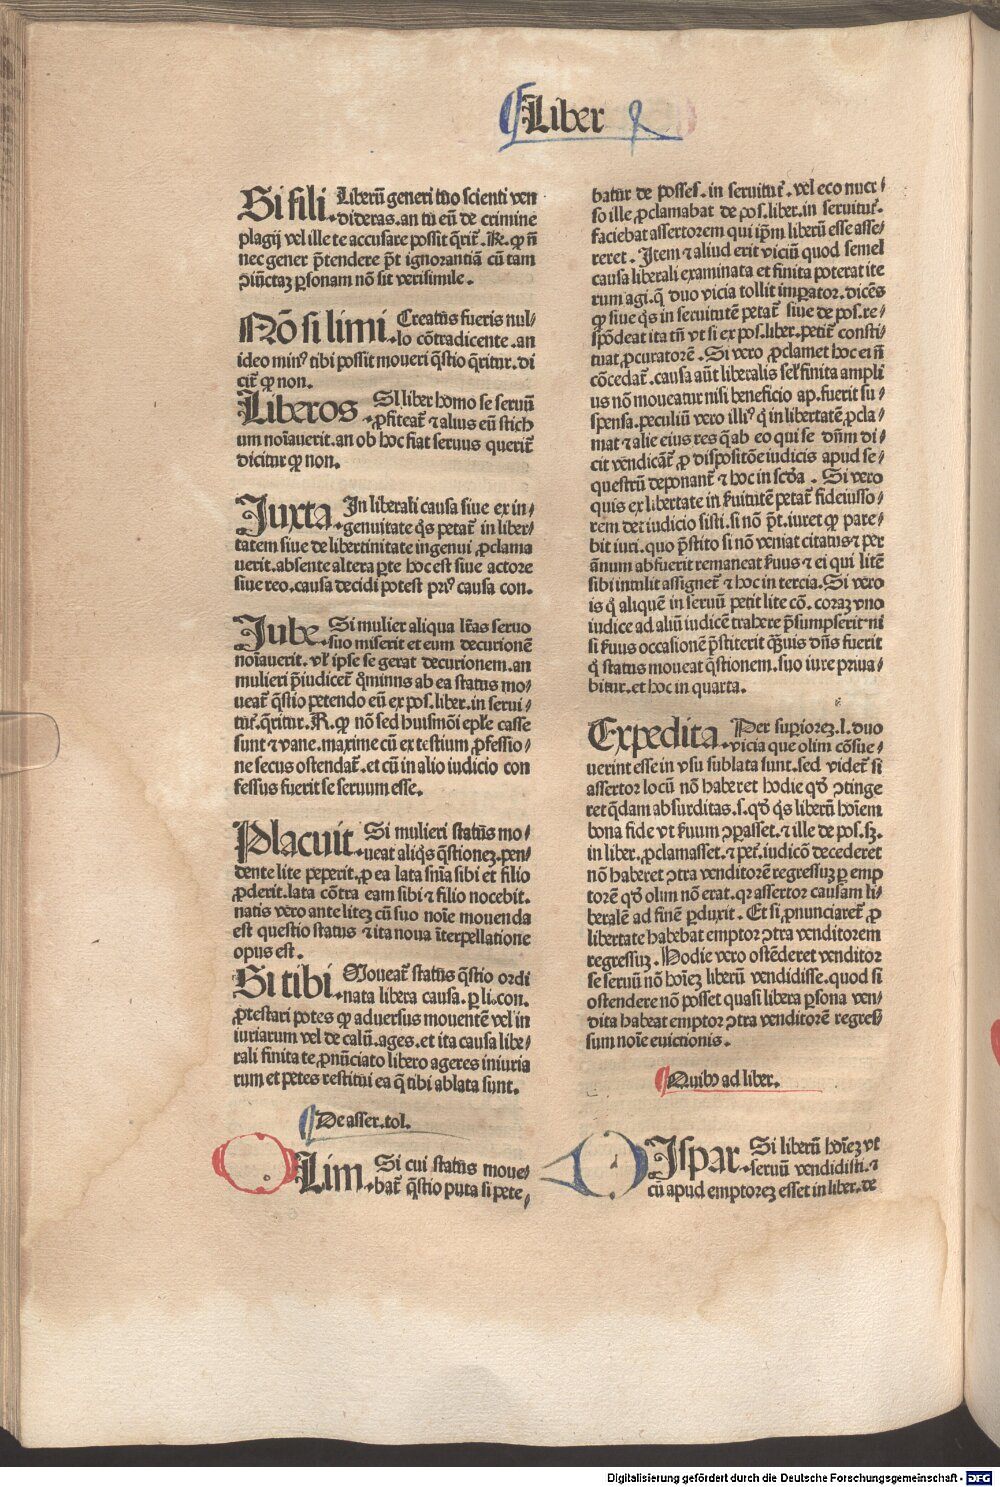 Liber
Si fili. Liberū generi tuo scienti ven
dideras. an tu eū de crimine
plagij vel ille te accusare possit q̄rit᷑. R. ꝙ n̄
nec gener p̄tendere p̄t ignorantiā cū tam
ↄiūctaꝫ ꝑsonam nō sit verisimile.
Nō si limi. Creatus fueris nul⸗
lo cōtradicente. an
ideo minꝰ tibi possit moueri q̄stio q̄ritur. di
cit᷑ ꝙ non.
Liberos. Si liber homo se seruū
ꝓfiteat᷑ ⁊ alius eū stich
um noīauerit. an ob hoc fiat seruus querit᷑
dicitur ꝙ non.
Juxta. In liberali causa siue ex in⸗
genuitate q̄s petat᷑ in liber⸗
tatem siue de libertinitate ingenui ꝓclama
uerit. absente altera ꝑte hoc est siue actore
siue reo. causa decidi potest priꝰ causa con.
Jube. Si mulier aliqua lr̄as seruo
suo miserit et eum decurionē
noīauerit. vl̓ ipse se gerat decurionem. an
mulieri p̄iudicet᷑ q̊minus ab ea status mo⸗
ueat᷑ q̄stio petendo eū ex pos. liber. in serui⸗
tut᷑. q̄ritur. R. ꝙ nō sed huismōi epl̓e casse
sunt ⁊ vane. maxime cū ex testium ꝓfessio⸗
ne secus ostendat᷑. et cū in alio iudicio con
fessus fuerit se seruum esse.
Placuit. Si mulieri status mo⸗
ueat aliq̇s q̄stioneꝫ. pen⸗
dente lite peperit. ꝓ ea lata sn̄ia sibi et filio
ꝓderit. lata cōtra eam sibi ⁊ filio nocebit.
natis vero ante liteꝫ cū suo noīe mouenda
est questio status ⁊ ita noua īterpellatione
opus est.
Si tibi. Moueat᷑ status q̄stio ordi
nata libera causa. ꝑ li. con.
ꝓtestari potes ꝙ aduersus mouentē vel in
iuriarum vel de calū. ages. et ita causa libe⸗
rali finita te ꝓnūciato libero ageres iniuria
rum et petes restitui ea q̄ tibi ablata sunt.
De asser. tol.
OLim. Si cui status moue⸗
bat᷑ q̄stio puta si pete⸗
batur de posses. in seruitut᷑. vel eco nuer⸗
so ille ꝓclamabat de pos. liber. in seruitut᷑.
faciebat assertorem qui ip̄m liberū esse asse⸗
reret. Item ⁊ aliud erit viciū quod semel
causa liberali examinata et finita poterat ite
rum agi. q̄ duo vicia tollit imꝑator. dicēs
ꝙ siue q̇s in seruitutē petat᷑ siue de pos. re⸗
spōdeat ita tn̄ vt si ex pos. liber. petit᷑ consti⸗
tuat ꝓcuratorē. Si vero ꝓclamet hoc ei n̄
cōcedat᷑. causa aūt liberalis sel̓ finita ampli
us nō moueatur nisi beneficio ap. fuerit su⸗
spensa. peculiū vero illiꝰ q̇ in libertatē ꝓcla⸗
mat ⁊ alie eius res q̄ ab eo qui se dn̄m di⸗
cit vendicāt᷑ ꝓ dispositōe iudicis apud se⸗
questrū deponant᷑ ⁊ hoc in scd̓a. Si vero
quis ex libertate in ẜuitutē petat᷑ fideiusso⸗
rem det iudicio sisti. si nō p̄t. iuret ꝙ pare⸗
bit iuri. quo p̄stito si nō veniat citatus ⁊ per
annum abfuerit remaneat ẜuus ⁊ ei qui litē
sibi intulit assignet᷑ ⁊ hoc in tercia. Si vero
is q̇ aliquē in seruū petit lite cō. coraꝫ vno
iudice ad aliū iudicē trahere p̄sumpserit ni
si ẜuus occasionē p̄stiterit q̄uis dn̄s fuerit
q̇ status moueat q̄stionem. suo iure priua⸗
bitur. et hoc in quarta.
Expedita. Per suꝑioreꝫ. l. duo
vicia que olim cōsue⸗
uerint esse in vsu sublata sunt. sed videt᷑ si
assertor locū nō haberet hodie qd̓ ↄtinge
ret q̄dam absurditas. s. qd̓ q̇s liberū hoīem
bona fide vt ẜuum ↄꝑasset. ⁊ ille de pos. sꝫ.
in liber. ꝓclamasset. ⁊ pet᷑. iudicō decederet
nō haberet ↄtra venditorē regressuꝫ ꝑ emp
torē qd̓ olim nō erat. qr assertor causam li⸗
beralē ad finē ꝑduxit. Et si ꝓnunciaret᷑ ꝓ
libertate habebat emptor ↄtra venditorem
regressuꝫ. Hodie vero ostēderet venditor
se seruū nō hoīeꝫ liberū vendidisse. quod si
ostendere nō posset quasi libera ꝑsona ven⸗
dita habeat emptor ↄtra venditorē regreſ
sum noīe euictionis.
Quibꝰ ad liber.
DIspar. Si liberū hoīeꝫ vt
seruū vendidisti. ⁊
cū apud emptoreꝫ esset in liber. de
Digitalisierung gefördert durch die Deutsche Forschungsgemeinschaft - DFG